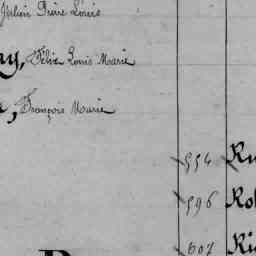 Julien Pierre Louis
ay, Félix Louis Marie
, François Marie
554 Ru
596 Rob
607 Ri